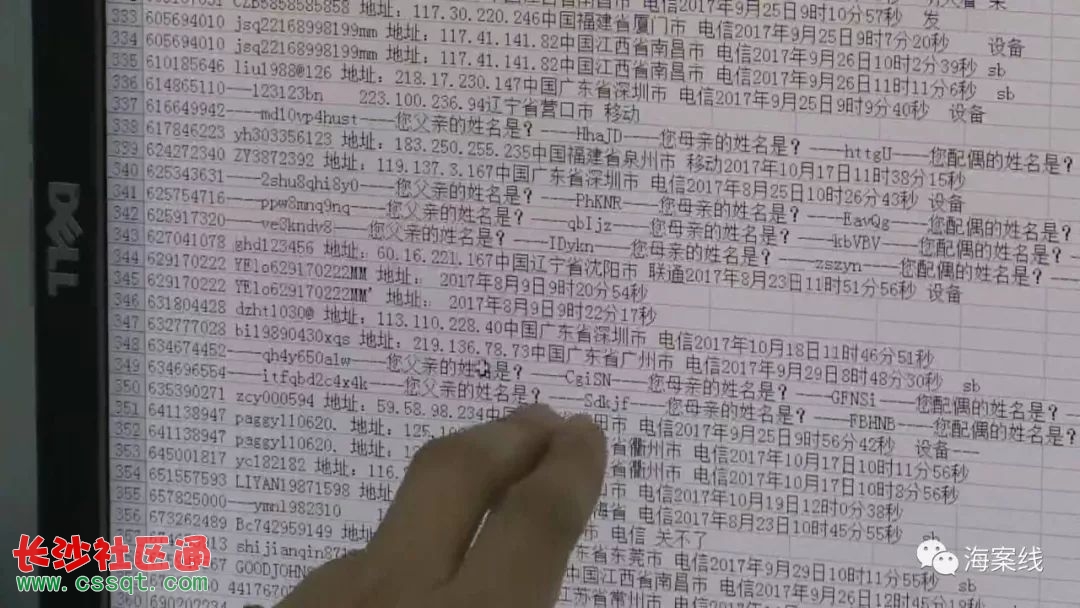 CZB5858585858 地址：117.30.220.246中国福建省厦门市 电信2017年9月25日9时10分57秒 发
333 605694010 jsq22168998199mm 地址：117.41.141.82中国江西省南昌市 电信2017年9月25日9时7分20秒 设备
334 605694010 jsq22168998199mm 地址：117.41.141.82中国江西省南昌市 电信2017年9月26日10时2分39秒 sb
335 610185646 liu1988@126 地址：218.17.230.147中国广东省深圳市 电信2017年9月26日11时11分6秒 sb
336 614865110——123123bn 223.100.236.94辽宁省营口市 移动
337 616649942——md10vp4hust——您父亲的姓名是？——HhaJD——您母亲的姓名是？——httgU——您配偶的姓名是？
338 617846223 yh303356123 地址：183.250.255.235中国福建省泉州市 移动2017年10月17日11时38分15秒
339 624272340 ZY3872392 地址：119.137.3.167中国广东省深圳市 电信2017年8月25日10时26分43秒 设备
340 625343631——2shu8qhi8y0——您父亲的姓名是？——PhKNR——您母亲的姓名是？——EavQg——您配偶的姓名是？
341 625754716——ppw8mnq9nq——您父亲的姓名是？——qbIjz——您母亲的姓名是？——kbVBV——您配偶的姓名是？
342 625917320——ve3kndv8——您父亲的姓名是？——IDykn——您母亲的姓名是？——zszyn——您配偶的姓名是？
343 627041078 ghd123456 地址：60.16.221.167中国辽宁省沈阳市 联通2017年8月23日11时51分56秒 设备
344 629170222 YElo629170222MM 地址： 2017年8月9日9时20分54秒
345 629170222 YElo629170222MM' 地址： 2017年8月9日9时22分17秒
346 631804428 dzht1030@ 地址：113.110.228.40中国广东省深圳市 电信2017年10月18日11时46分51秒
347 632777028 bi19890430xqs 地址：219.136.78.73中国广东省广州市 电信2017年9月29日8时48分30秒 sb
348 634674452——qh4y650alw——您父亲的姓名是？——CgiSN——您母亲的姓名是？——GFNSi——您配偶的姓名是？
349 634696554——itfqbd2c4x4k——您父亲的姓名是？——Sdkjf——您母亲的姓名是？——FBHNB——您配偶的姓名是？
350 635390271 zcy000594 地址：59.58.98.234中国 市 电信2017年9月25日9时56分42秒 设备
351 641138947 paggy110620. 地址：125. 省衢州市 电信2017年10月17日10时11分56秒
352 641138947 paggy110620. 地址： 省衢州市 电信2017年10月17日10时8分56秒
353 645001817 yc182182 地址：116. 市 电信2017年10月19日12时0分38秒
354 651557593 LIYAN19871598 地址 电信2017年8月23日10时45分55秒
355 657825000——ymn1982310 市 电信 关不了
356 673262489 Bc742959149 地址 省东莞市 电信2017年9月29日10时11分55秒 sb
shijianqin87 中国江西省南昌市
GOODJOHN 江苏省常州市
360 690202234
DELL
长沙社区通
www.cssqt.com
海案线